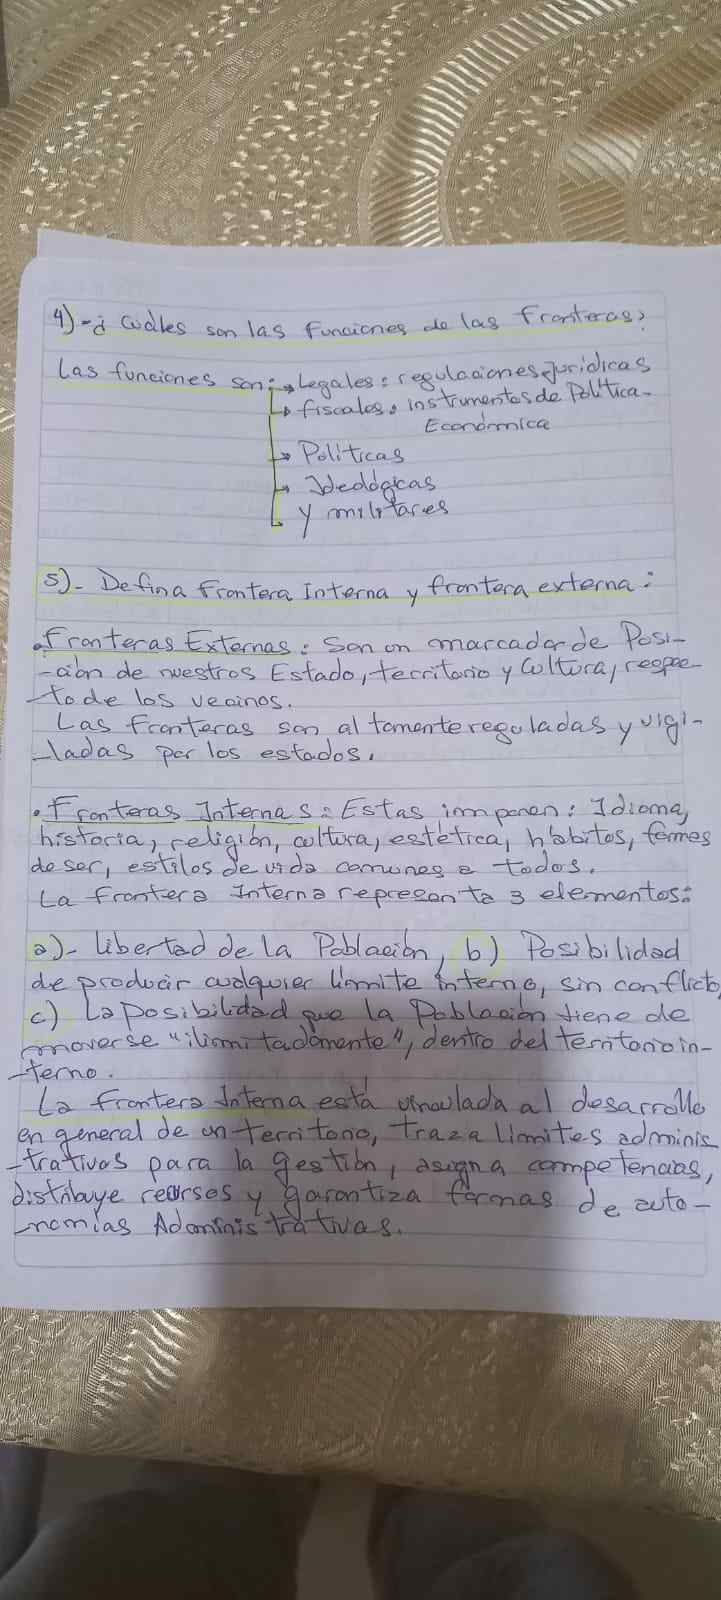 4)-¿Cuáles son las funciones de las Fronteras?
Las funciones son: → Legales: regulaciones Jurídicas
→ fiscales: instrumentos de Política
Económica
→ Políticas
→ Ideológicas
y militares
5)- Defina Frontera Interna y frontera externa:
. Fronteras Externas: Son un marcador de Posi-
-ción de nuestros Estado, territorio y Cultura, respec-
-to de los vecinos.
Las Fronteras son altamente reguladas y vigi-
-ladas por los estados.
. Fronteras Internas: Estas imponen: Idioma,
historia, religión, cultura, estética, hábitos, formas
de ser, estilos de vida comunes a todos.
La Frontera Interna representa 3 elementos:
a)- libertad de la Población, b) Posibilidad
de producir cualquier límite interno, sin conflicto,
c) La posibilidad que la Población tiene de
moverse "ilimitadamente", dentro del territorio in-
-terno.
La Frontera Interna está vinculada al desarrollo
en general de un territorio, traza límites adminis
-trativos para la gestión, asigna competencias,
distribuye recursos y garantiza formas de auto-
-nomías Administrativas.